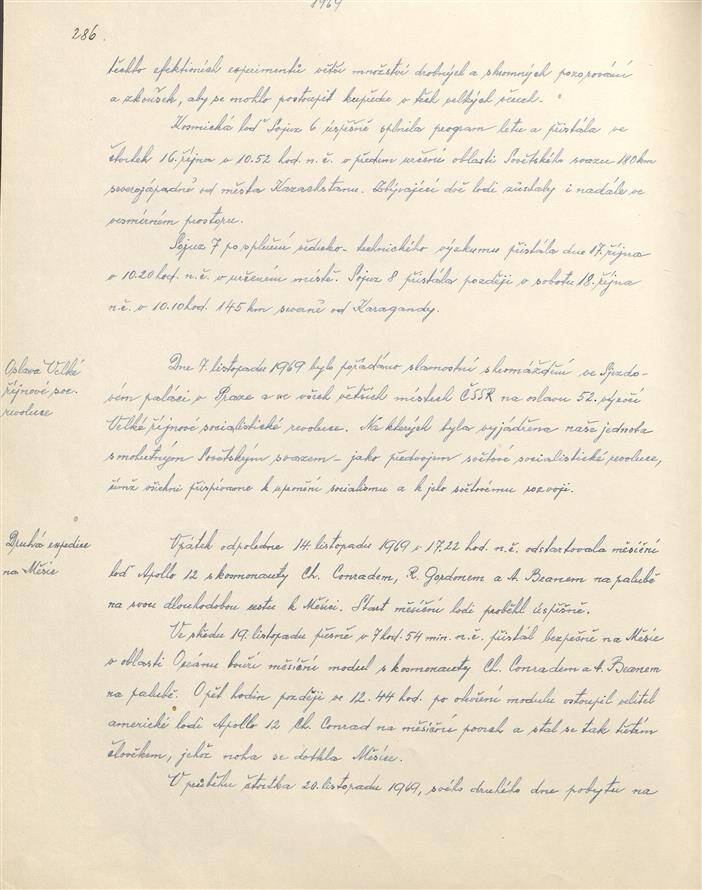 1969
286.
těchto efektivních experimentů větší množství drobných a skromných pozorování
a zkoušek, aby se mohlo postoupit kupředu v těch velkých věcech.
Kosmická loď Sojuz 6 úspěšně splnila program letu a přistála ve
čtvrtek 16. října v 10.52 hod. n. č. v předem určené oblasti Sovětského svazu 180 km
severozápadně od města Kazachstanu. Zbývající dvě lodi zůstaly i nadále ve
vesmírném prostoru.
Sojuz 7 po splnění vědecko-technického výzkumu přistála dne 17. října
v 10.20 hod. n. č. v určeném místě. Sojuz 8 přistála později v sobotu 18. října
n. č. v 10.10 hod. 145 km severně od Karagandy.
Oslava Velké
říjnové soc.
revoluce
Dne 7. listopadu 1969 bylo pořádáno slavnostní shromáždění ve Sjezdo-
vém paláci v Praze a ve všech větších místech ČSSR na oslavu 52. výročí
Velké říjnové socialistické revoluce. Na kterých byla vyjádřena naše jednota
s mohutným Sovětským svazem - jako předvojem světové socialistické revoluce,
čímž všichni přispíváme k upevnění socialismu a k jeho světovému rozvoji.
Druhá expedice
na Měsíc
V pátek odpoledne 14. listopadu 1969 v 17.22 hod. n. č. odstartovala měsíční
loď Apollo 12 s kosmonauty Ch. Conradem, R. Gordonem a A. Beanem na palubě
na svou dlouhodobou cestu k Měsíci. Start měsíční lodi proběhl úspěšně.
Ve středu 19. listopadu přesně v 7 hod. 54 min. n. č. přistál bezpečně na Měsíce
v oblasti Oceánu bouří měsíční modul s kosmonauty Ch. Conradem a A. Beanem
na palubě. O pět hodin později ve 12.44 hod. po otevření modulu vstoupil velitel
americké lodi Apollo 12 Ch. Conrad na měsíční povrch a stal se tak třetím
člověkem, jehož noha se dotkla Měsíce.
V průběhu čtvrtka 20. listopadu 1969, svého druhého dne pobytu na